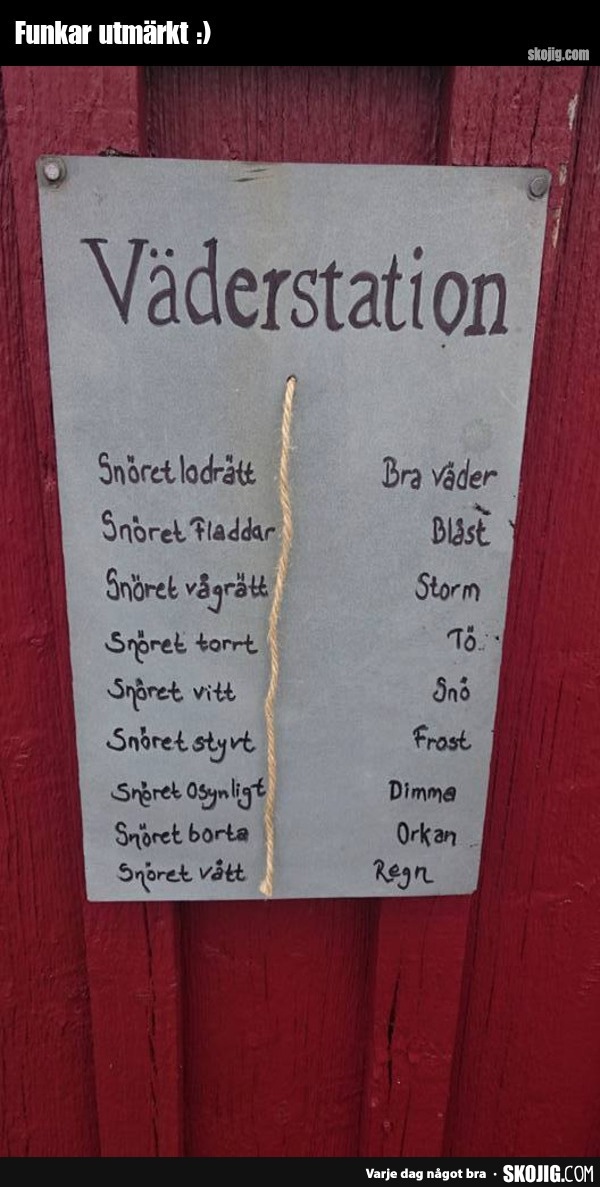 Funkar utmärkt :)
skojig.com
Väderstation
Snöret lodrätt Bra väder
Snöret Fladdar Blåst
Snöret vågrätt Storm
Snöret torrt Tö
Snöret vitt Snö
Snöret styvt Frost
Snöret Osynligt Dimma
Snöret borta Orkan
Snöret vått Regn
Varje dag något bra · SKOJIG.COM